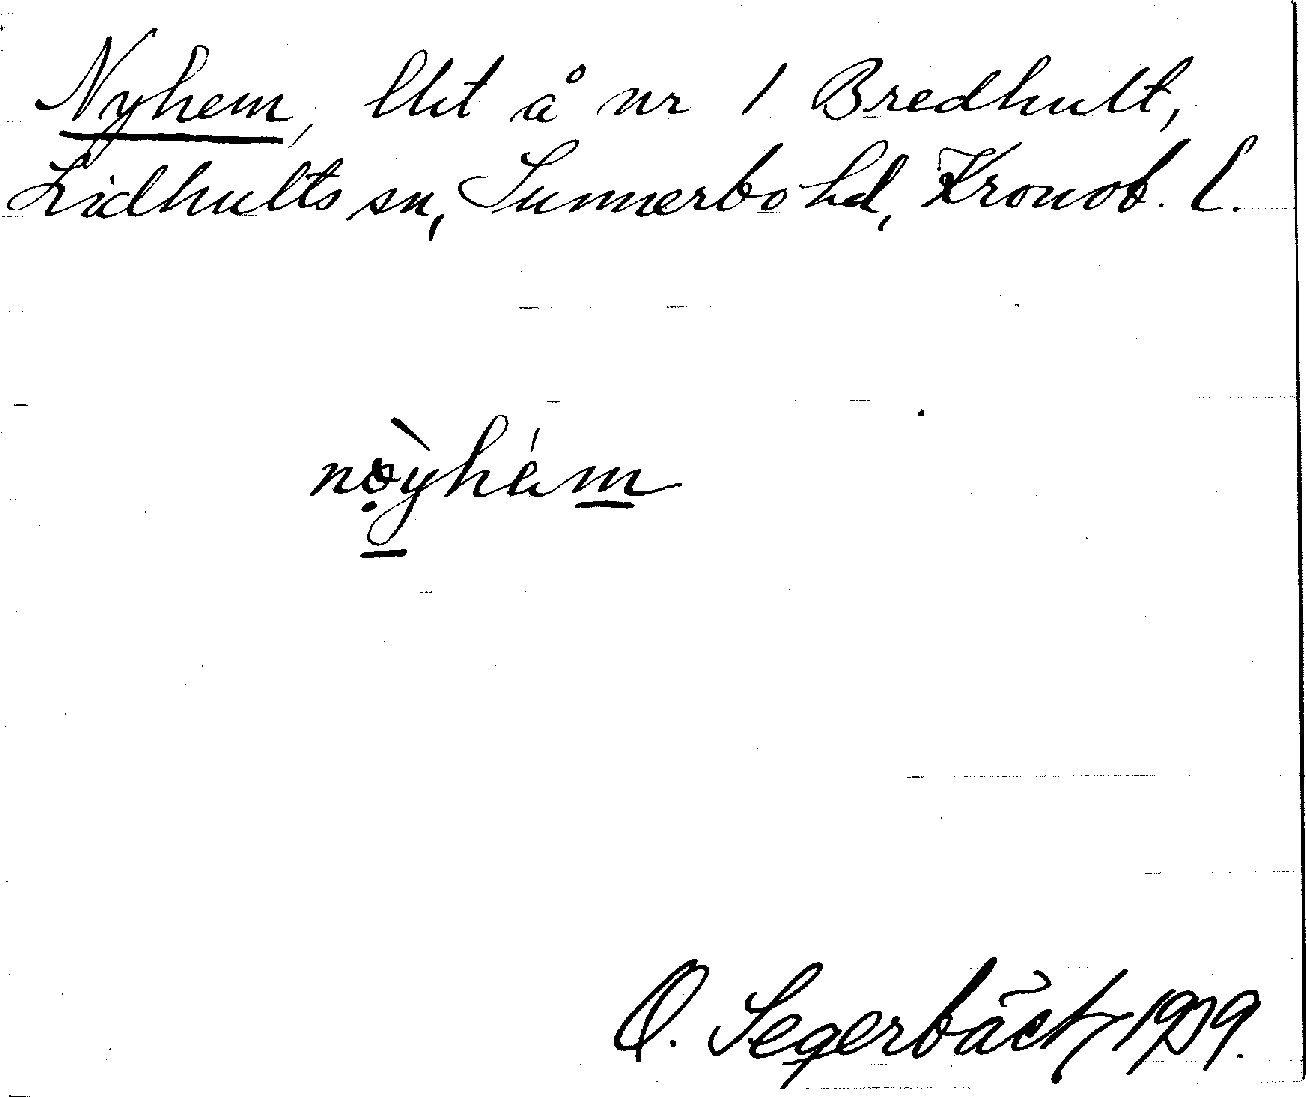 Nyhem, lht å nr 1 Bredhult,
Lidhults sn, Sunnerbo hd, Kronob. l.
nöỳhém
O. Segerbäck 1929.